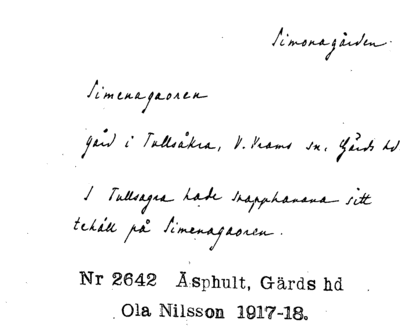 Simonagården.
Simenagaoren
gård i Tullsåkra, V. Vrams sn. Gärds hd
I Tullsagra hade snapphanana sitt
tehåll på Simenagaoren.
Nr 2642 Asphult, Gärds hd
Ola Nilsson 1917-18.